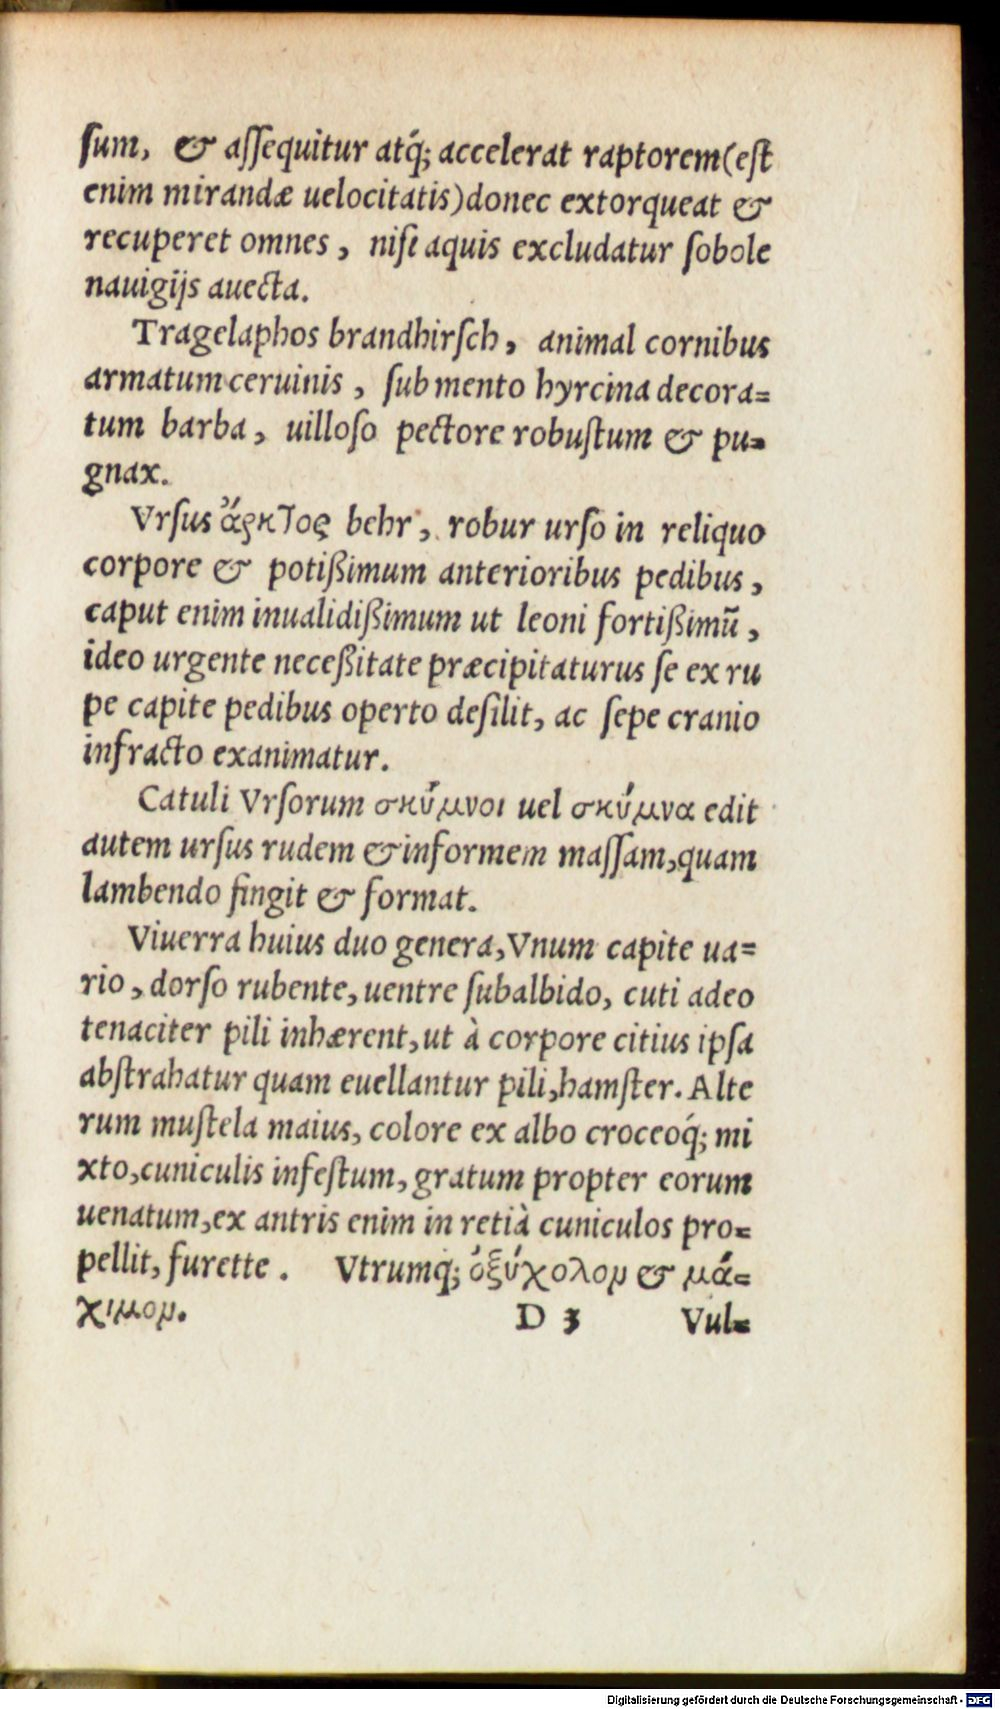 ſum, & aſſequitur atq́; accelerat raptorem(eſt
enim mirandæ uelocitatis)donec extorqueat &
recuperet omnes, niſi aquis excludatur ſobole
nauigijs auecta.
Tragelaphos brandhirſch, animal cornibus
armatum ceruinis, ſub mento hyrcina decora=
tum barba, uilloſo pectore robuſtum & pu=
gnax.
Vrſus ἄρκτος behr, robur urſo in reliquo
corpore & potißimum anterioribus pedibus,
caput enim inualidißimum ut leoni fortißimū,
ideo urgente neceßitate præcipitaturus ſe ex ru
pe capite pedibus operto deſilit, ac ſepe cranio
infracto exanimatur.
Catuli Vrſorum σκύμνοι uel σκύμνα edit
autem urſus rudem & informem maſſam, quam
lambendo fingit & format.
Viuerra huius duo genera, Vnum capite ua=
rio, dorſo rubente, uentre ſubalbido, cuti adeo
tenaciter pili inhærent, ut à corpore citius ipſa
abſtrahatur quam euellantur pili, hamſter. Alte
rum muſtela maius, colore ex albo croceoq́; mi
xto, cuniculis infeſtum, gratum propter eorum
uenatum, ex antris enim in retià cuniculos pro=
pellit, furette. Vtrumq́; ὀξύχολον & μά=
χιμον.
D 3 Vul=
Digitalisierung gefördert durch die Deutsche Forschungsgemeinschaft - DFG